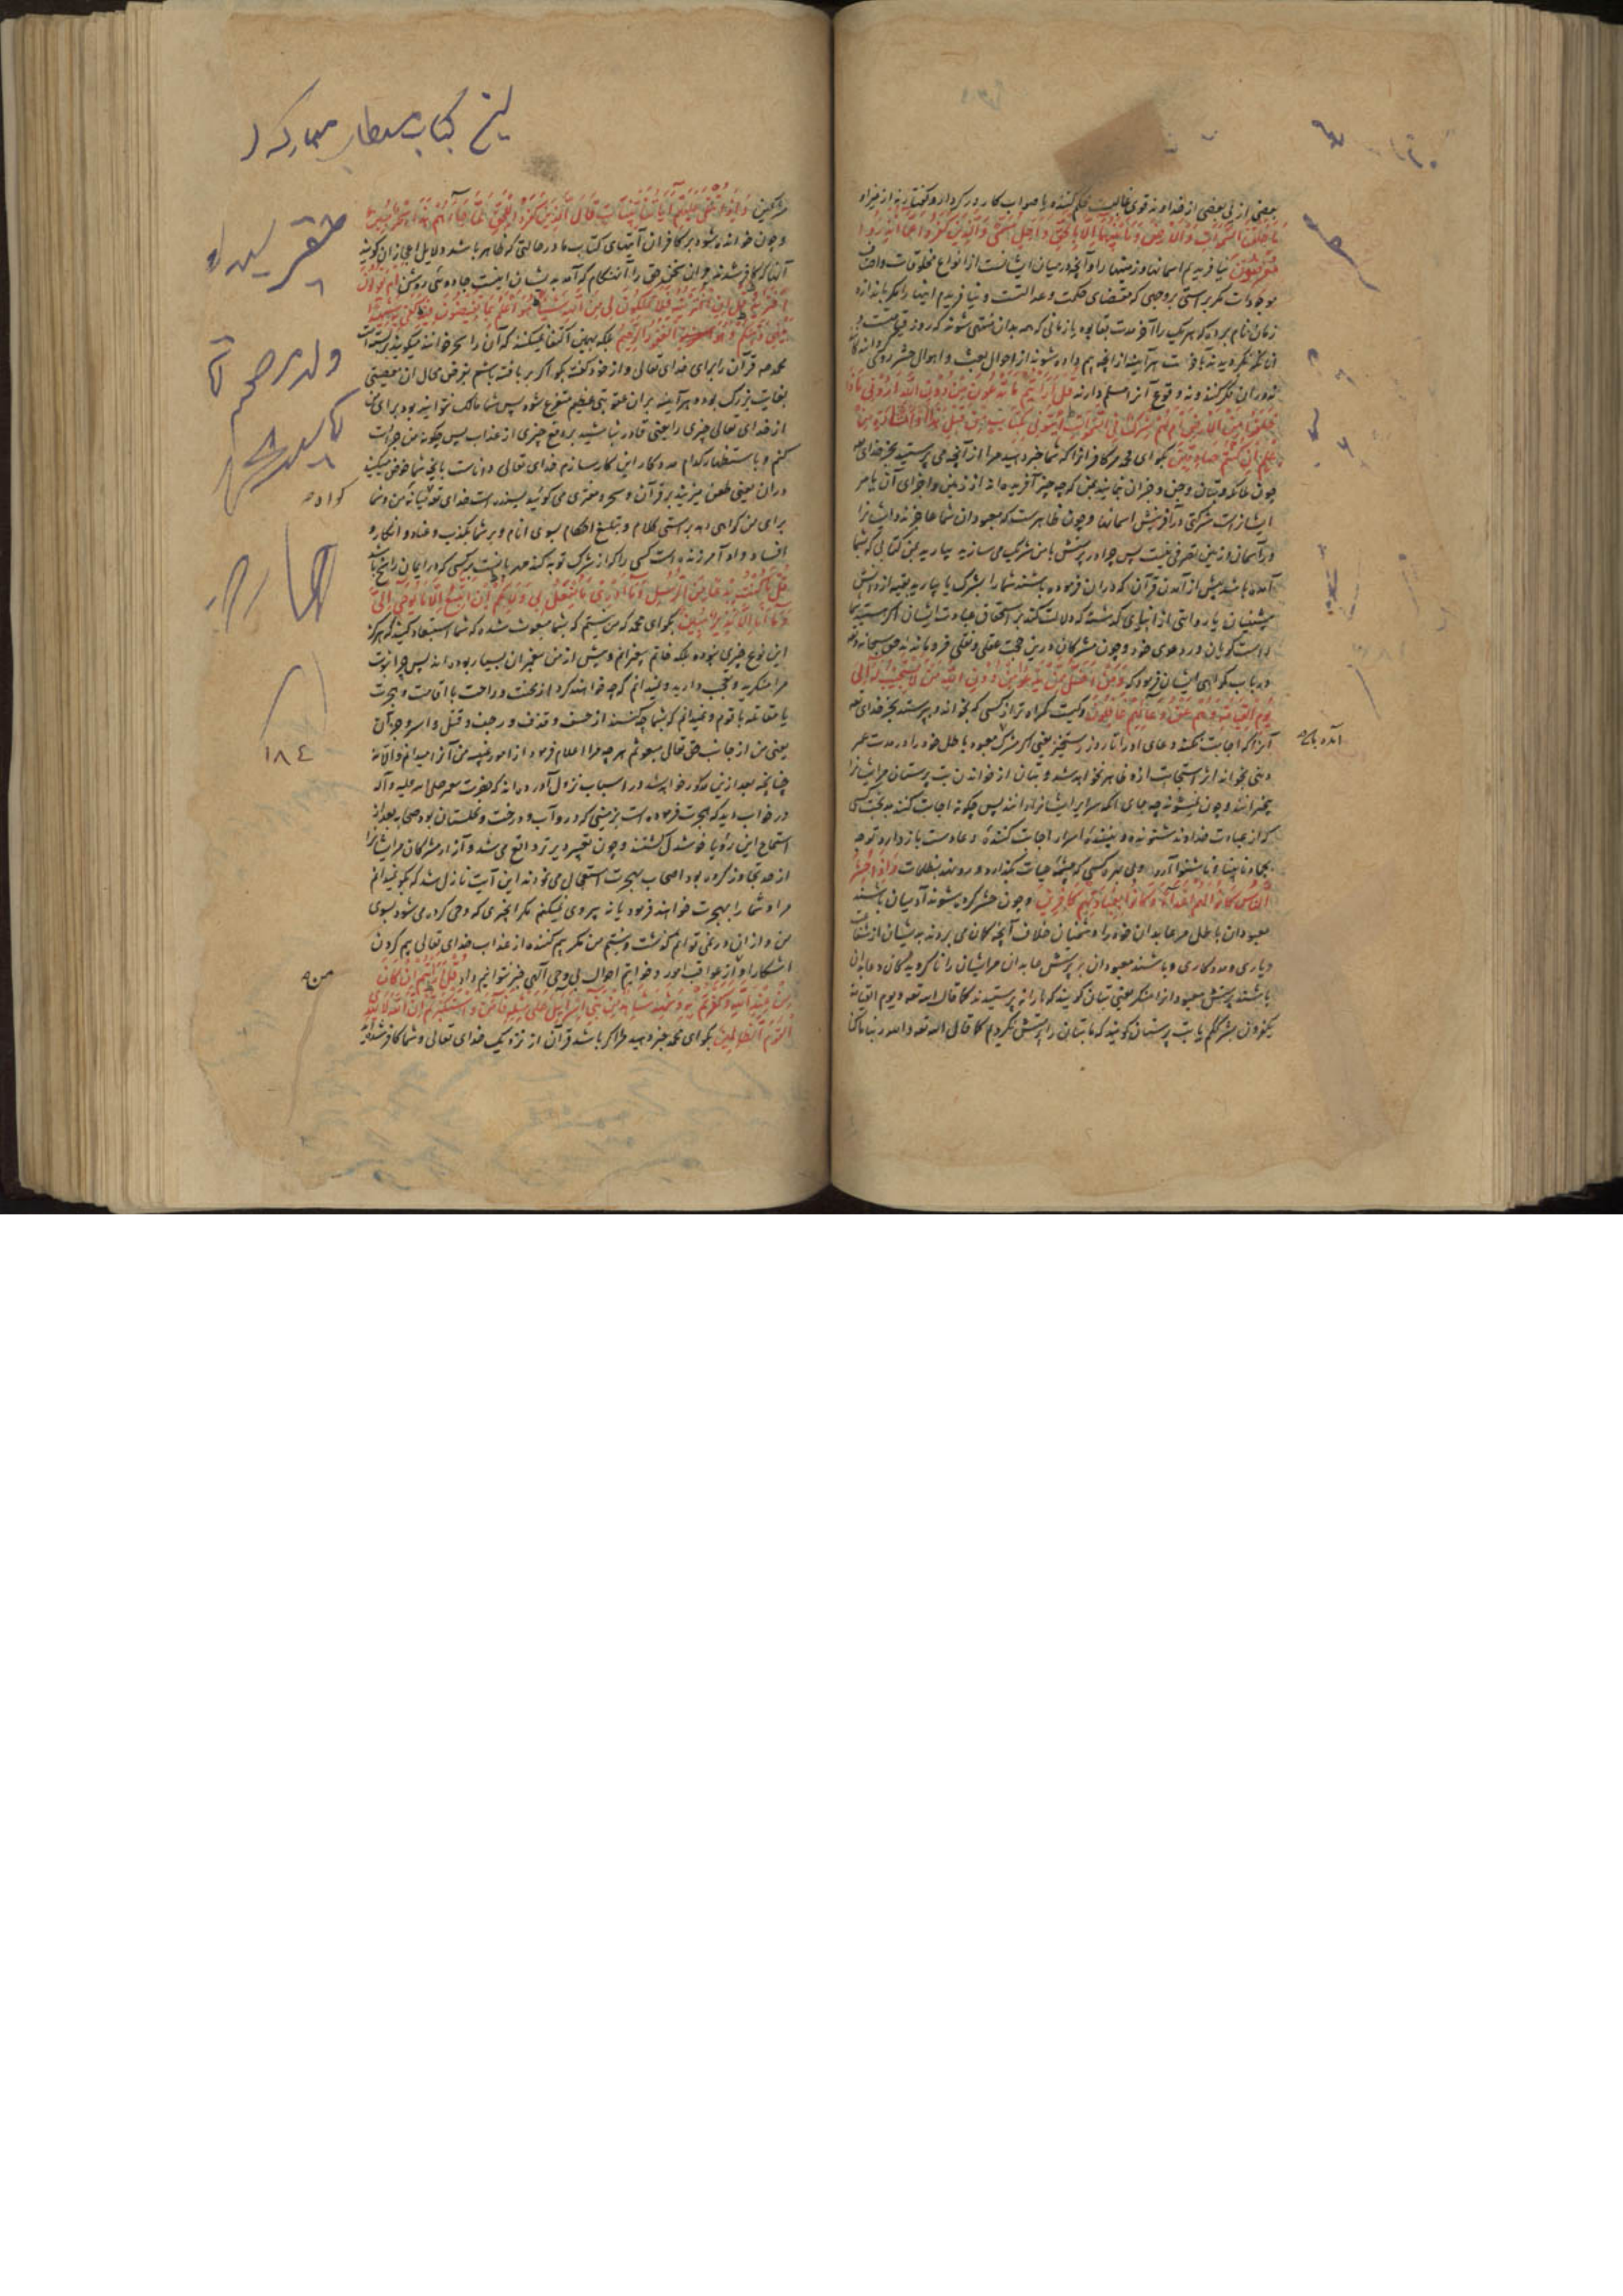 بعضی از پی بعضی از خداوند قوی غالب حکم کننده با صواب کار در کردار و گفتار نه از غیر او
مَا خَلَقْنَا السَّمَوَاتِ وَالْأَرْضَ وَمَا بَيْنَهُمَا إِلَّا بِالْحَقِّ وَأَجَلٍ مُسَمًّى وَالَّذِينَ كَفَرُوا عَمَّا أُنْذِرُوا
مُعْرِضُونَ نیافریدیم اسمانها و زمینها را و آنچه در میان ایشانست از انواع مخلوقات و اصناف
موجودات مگر براستی بر وجهی که مقتضای حکمت و عدالتست و نیافریدم اینها را مگر باندازه
زمان نام برده که هر یک را آخر مدت بقا بود یا زمانی که همه بدان منتهی شوند که روز قیامتست و
آنانکه نگرویدند باخرت هرآینه از آنچه بیم داده شوند از احوال بعث و اهوال حشر روی گرداننده‌اند
نه دران فکر کنند و نه وقوع آنرا مسلم دارند قُلْ أَرَأَيْتُمْ مَا تَدْعُونَ مِنْ دُونِ اللَّهِ أَرُونِي مَاذَا
خَلَقُوا مِنَ الْأَرْضِ أَمْ لَهُمْ شِرْكٌ فِي السَّمَوَاتِ ائْتُونِي بِكِتَابٍ مِنْ قَبْلِ هَذَا أَوْ أَثَارَةٍ مِنْ
عِلْمٍ إِنْ كُنْتُمْ صَادِقِينَ بگو ای محمد مر کافرانرا که شما خبر دهید مرا از آنچه می پرستید بجز خدای
چون ملائکه و بتان و جن و جز آن بنمایید بمن که چه چیز آفریده‌اند از زمین و اجزای آن یا مر
ایشانراست شرکتی در آفرینش اسمانها و چون ظاهر است که معبودان شما عاجزند و ایشانرا
در آسمان و زمین تصرفی نیست پس چرا در پرستش با من شریک می سازید بیارید بمن کتابی که بشما
آمده باشد پیش از آمدن قرآن که دران فرموده باشند شما را بشرک یا بیارید بقیه از دانش
پیشینیان یا روایتی از انبیای گذشته که دلالت کند بر استحقاق عبادت ایشان اگر هستید شما
راست گویان در دعوی خود و چون مشرکان درین حجت عقلی و نقلی فرو ماندند حق سبحانه و تعالی
در باب گمراهی ایشان فرمود که وَمَنْ أَضَلُّ مِمَّنْ يَدْعُو مِنْ دُونِ اللَّهِ مَنْ لَا يَسْتَجِيبُ لَهُ إِلَى
يَوْمِ الْقِيَامَةِ وَهُمْ عَنْ دُعَائِهِمْ غَافِلُونَ و کیست گمراه تر از کسی که بخواند و بپرستد بجز خدای
آنرا که اجابت نکند دعای او را تا روز رستخیز یعنی اگر مشرک معبود باطل خود را در مدت عمر
دنیی بخواند اثر استجابت ازو ظاهر نخواهد شد و بتان از خواندن بت پرستان مر ایشانرا
بیخبرانند و چون نشنوند چه جای آنکه سرایر ایشانرا دانند پس چگونه اجابت کنند بدبخت کسی
که از عبادت خداوند شنونده و بیننده اسرار اجابت کننده دعا دست بازدارد و توجه
بجماد نابینا و ناشنوا آرد بی بهره کسی که چشمه حیات بگذارد و رو نهد بظلمات وَإِذَا حُشِرَ
النَّاسُ كَانُوا لَهُمْ أَعْدَاءً وَكَانُوا بِعِبَادَتِهِمْ كَافِرِينَ و چون حشر کرده شوند آدمیان باشند
معبودان باطل مر عابدان خود را دشمنان خلاف آنچه گمان می بردند بدیشان از شفاعت
و یاری و مددکاری و باشند معبودان بر پرستش عابدان مر ایشان را ناگرویدگان و عابدان
باشند پرستش معبودانرا منکر یعنی بتان گویند که ما را نه پرستیدند کما قال الله تعه و یوم القیامة
یکفرون بشرککم یا بت پرستان گویند که ما بتان را پرستش نکردیم کما قال الله تعه والله ربنا ما کنا
آمده باشد
مشرکین وَإِذَا تُتْلَى عَلَيْهِمْ آيَاتُنَا بَيِّنَاتٍ قَالَ الَّذِينَ كَفَرُوا لِلْحَقِّ لَمَّا جَاءَهُمْ هَذَا سِحْرٌ مُبِينٌ
و چون خوانده شود بر کافران آیتهای کتاب ما در حالتی که ظاهر باشد دلایل اعجاز آن گویند
آنان که کافر شدند مر آن سخن حق را آنهنگام که آمد بدیشان اینست جادوئی روشن أَمْ يَقُولُونَ
افْتَرَاهُ قُلْ إِنِ افْتَرَيْتُهُ فَلَا تَمْلِكُونَ لِي مِنَ اللَّهِ شَيْئًا هُوَ أَعْلَمُ بِمَا تُفِيضُونَ فِيهِ كَفَى بِهِ شَهِيدًا
بَيْنِي وَبَيْنَكُمْ وَهُوَ الْغَفُورُ الرَّحِيمُ بلکه بهمین اکتفا نمیکنند که آن را سحر خوانند میگویند بربسته است
محمد مر قرآن را برای خدای تعالی و از خود گفته بگو اگر بر بافته باشم بفرض محال آن معصیتی
بغایت بزرگ بوده هرآینه بران عقوبتی عظیم متفرع شود پس شما مالک نتوانید بود برای من
از خدای تعالی چیزی را یعنی قادر نباشید بر دفع چیزی از عذاب پس چگونه من جرأت
کنم و باستظهار کدام مددکار این کار سازم خدای تعالی داناست بآنچه شما خوض میکنید
دران یعنی طعن میزنید بر قرآن و سحر و مفتری می گوئید بسنده است خدای تعه میانه من و شما
برای من گواهی دهد براستی کلام و تبلیغ احکام بسوی انام و بر شما بکذب و عناد و انکار و
افساد و او آمرزنده است کسی را که از شرک توبه کند مهربانست بر کسی که در ایمان راسخ باشد
قُلْ مَا كُنْتُ بِدْعًا مِنَ الرُّسُلِ وَمَا أَدْرِي مَا يُفْعَلُ بِي وَلَا بِكُمْ إِنْ أَتَّبِعُ إِلَّا مَا يُوحَى إِلَيَّ
وَمَا أَنَا إِلَّا نَذِيرٌ مُبِينٌ بگو ای محمد که من نیستم که بشما مبعوث شده که شما استبعاد کنید که هرگز
این نوع چیزی نبوده بلکه خاتم پیغمبرانم و پیش از من پیغمبران بسیار بوده‌اند پس چرا نبوت
مرا منکرید و عجب دارید و نمیدانم که چه خواهند کرد از محنت و راحت با اقامت و هجرت
یا مقاتله با قوم و نمیدانم که بشما چه کنند از خسف و قذف و رجف و قتل و اسر و جز آن
یعنی من از جانب حق تعالی مبعوثم هر چه مرا اعلام فرمود از امور غیبیه من آنرا میدانم والا نه
چنانچه بعد ازین مذکور خواهد شد در اسباب نزول آورده‌اند که حضرت پیغمبر صلی الله علیه و آله
در خواب دید که هجرت فرموده است بزمینی که درو آب و درخت و نخلستان بود صحابه بعد از
استماع این رؤیا خوشدل گشتند و چون تعبیر دیرتر واقع می شد و آزار مشرکان مر ایشانرا
از حد تجاوز کرده بود اصحاب بهجرت استعجال می نمودند این آیت نازل شد که بگو نمیدانم
مرا و شما را بهجرت خواهند فرمود یا نه پیروی نمیکنم مگر آنچیزی که وحی کرده می شود بسوی
من و از ان در نمی توانم گذشت و نیستم من مگر بیم کننده از عذاب خدای تعالی بیم کردن
آشکارا و از عواقب امور و خواتیم احوال بی وحی آلهی خبر نتوانیم داد قُلْ أَرَأَيْتُمْ إِنْ كَانَ
مِنْ عِنْدِ اللَّهِ وَكَفَرْتُمْ بِهِ وَشَهِدَ شَاهِدٌ مِنْ بَنِي إِسْرَائِيلَ عَلَى مِثْلِهِ فَآمَنَ وَاسْتَكْبَرْتُمْ إِنَّ اللَّهَ لَا يَهْدِي
الْقَوْمَ الظَّالِمِينَ بگو ای محمد خبر دهید مرا اگر باشد قرآن از نزدیک خدای تعالی و شما کافر شده‌اید
١٨٤